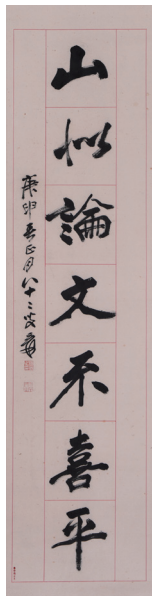 山似論文不喜平
庚申春正月八十二叟爰